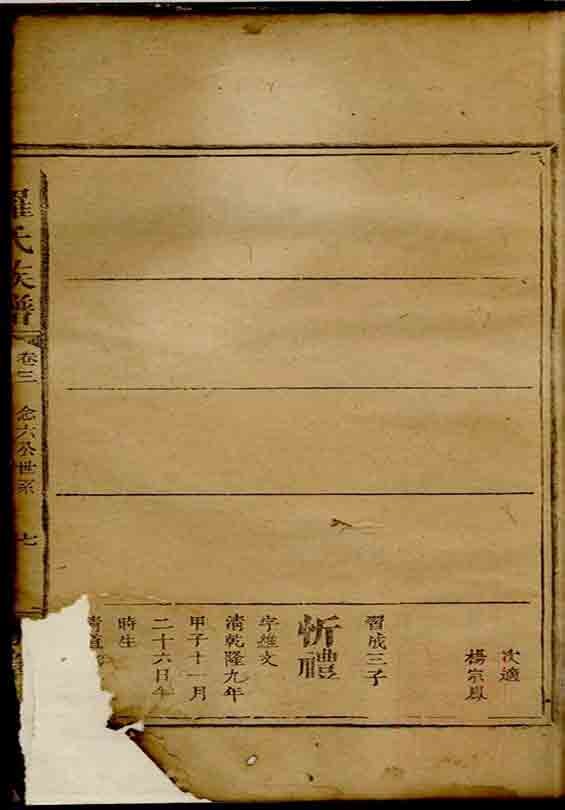 次適
楊宗鳳
習成三子
忻禮
字雄文
清乾隆九年
甲子十一月
二十六日午
時生
清道
羅氏族譜
卷三
念六公世系
七